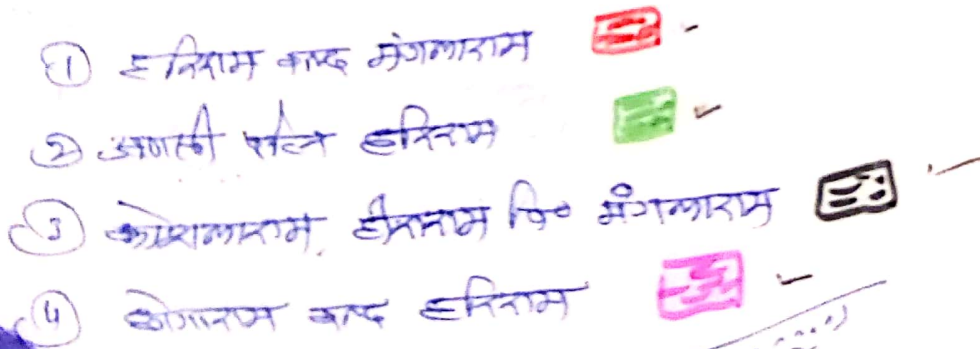 ① हरिराम वल्द मंगलाराम
② पत्नि हरिराम
③ कौशलाराम, हीराराम पि० मंगलाराम
④ वल्द हरिराम